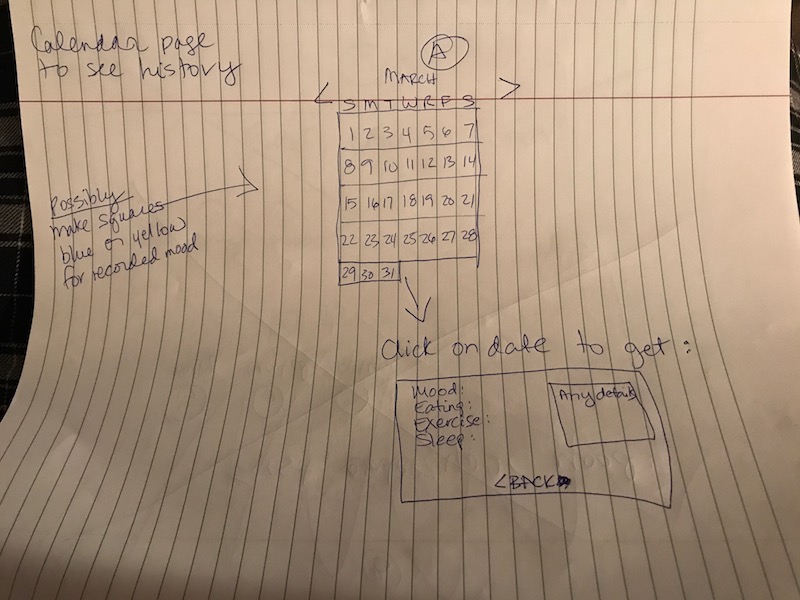 Calendar page
to see history
A
MARCH
< >
S M T W R F S
1 2 3 4 5 6 7
8 9 10 11 12 13 14
15 16 17 18 19 20 21
22 23 24 25 26 27 28
29 30 31
Possibly
make squares
blue or yellow
for recorded mood
Click on date to get:
Mood:
Eating:
Exercise:
Sleep:
Any details
<BACK